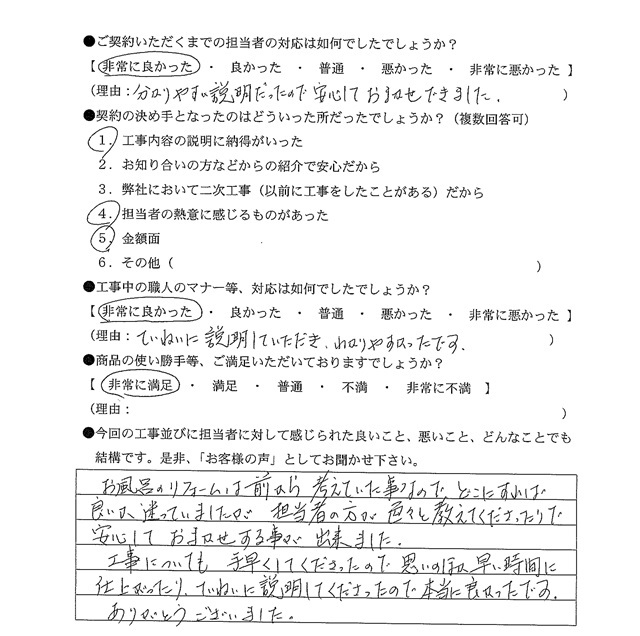 ●ご契約いただくまでの担当者の対応は如何でしたでしょうか？
【 非常に良かった ・ 良かった ・ 普通 ・ 悪かった ・ 非常に悪かった 】
（理由：分かりやすい説明だったので安心しておまかせできました. ）
●契約の決め手となったのはどういった所だったでしょうか？（複数回答可）
1．工事内容の説明に納得がいった
2．お知り合いの方などからの紹介で安心だから
3．弊社において二次工事（以前に工事をしたことがある）だから
4．担当者の熱意に感じるものがあった
5．金額面
6．その他（ ）
●工事中の職人のマナー等、対応は如何でしたでしょうか？
【 非常に良かった ・ 良かった ・ 普通 ・ 悪かった ・ 非常に悪かった 】
（理由：ていねいに説明していただき、わかりやすかったです. ）
●商品の使い勝手等、ご満足いただいておりますでしょうか？
【 非常に満足 ・ 満足 ・ 普通 ・ 不満 ・ 非常に不満 】
（理由： ）
●今回の工事並びに担当者に対して感じられた良いこと、悪いこと、どんなことでも
結構です。是非、「お客様の声」としてお聞かせ下さい。
お風呂のリフォームは前から考えていた事なので、どこにすれば
良いか迷っていましたが 担当者の方が色々と教えてくださったりで
安心しておまかせする事が出来ました.
工事についても 手早くしてくださったので思いのほか早い時間に
仕上がったり、ていねいに説明してくださったので本当に良かったです.
ありがとうございました.